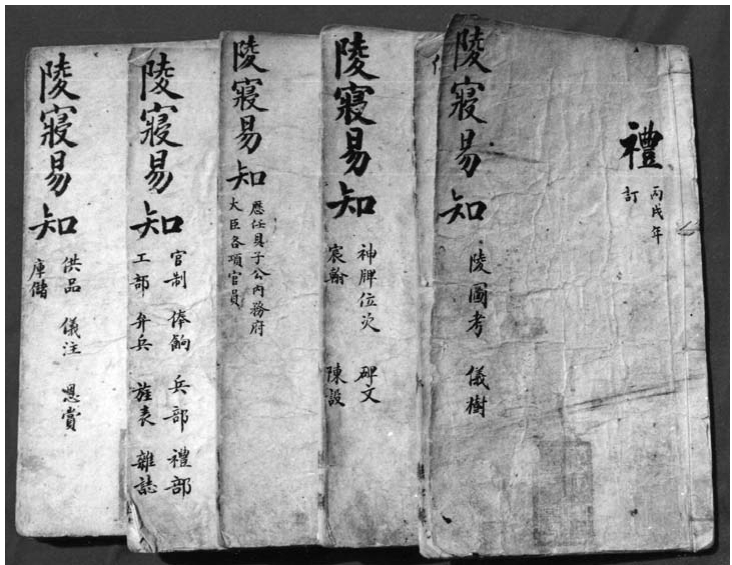 禮
丙戌年
訂
陵寢易知
陵圖考 儀樹
陵寢易知
神牌位次 碑文
宸翰 陳設
陵寢易知
歷任貝子公內務府
大臣各項官員
陵寢易知
官制 俸餉 兵部 禮部
工部 弁兵 旌表 雜誌
陵寢易知
供品 儀注 恩賞
庫儲